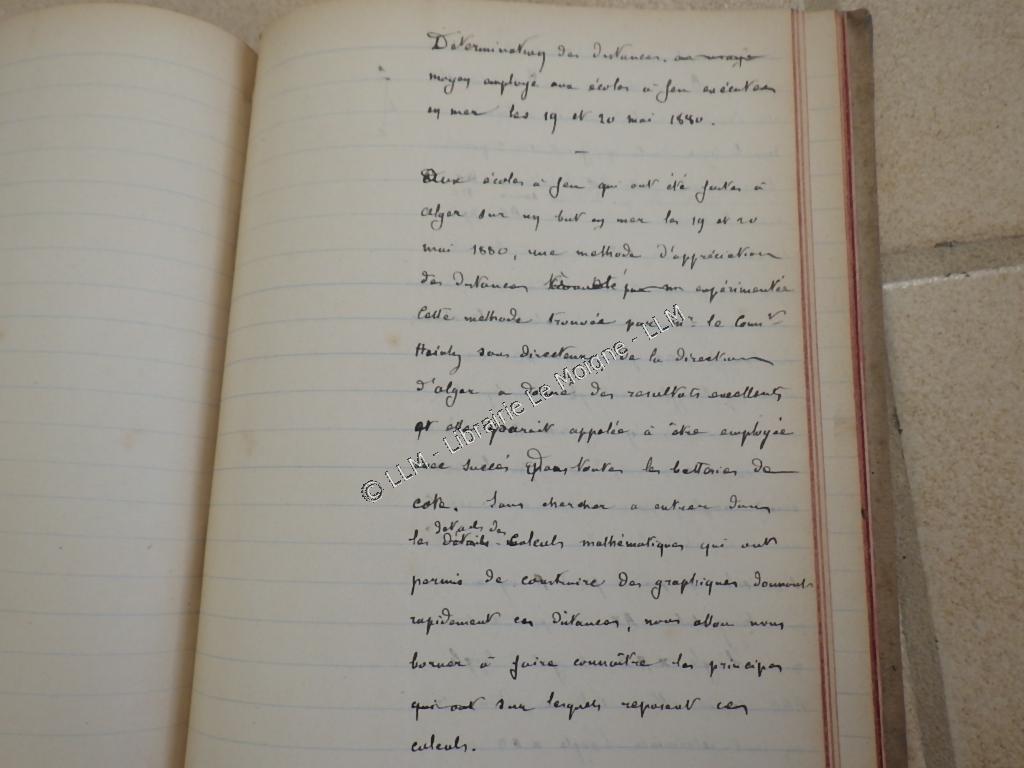 Determination des distances. au moye
moyen employé aux écoles à feu exécutées
en mer les 19 et 20 mai 1880.
Aux écoles à feu qui ont été faites à
alger sur un but en mer les 19 et 20
mai 1880, une methode d'appréciation
des distances expérimentée
Cette methode trouvée par Mr le Comt
sous directeur de la direction
d'alger a donné des resultats excellents
et elle parait appelée à être employée
avec succés dans toutes les batteries de
cote. Sans chercher a entrer dans
details des
les détails calculs mathématiques qui ont
permis de construire des graphiques donnant
rapidement ces distances, nous allons nous
borner à faire connaître les principes
qui ont sur lesquels reposent ces
calculs.
© LLM - Librairie Le Moigne - LLM